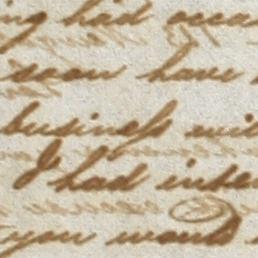 ing had occa
soon have
business wit
I had inten
you would